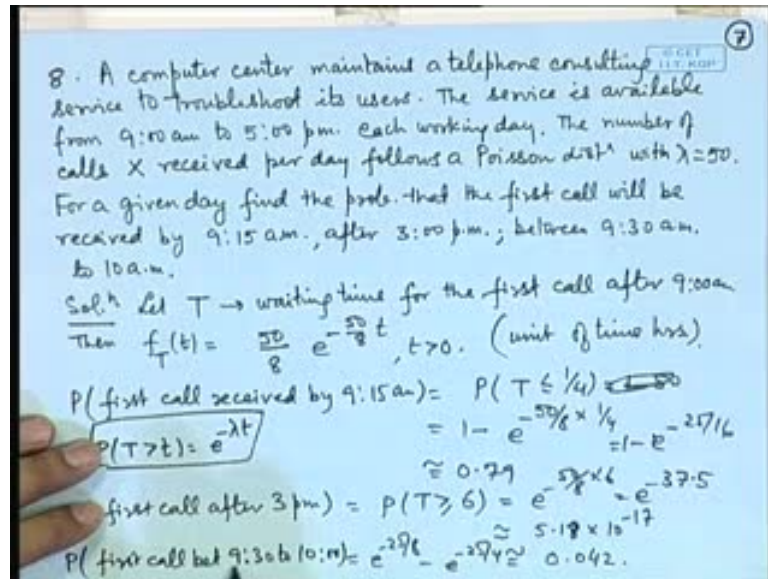 7
© CET
I.I.T. KGP
8. A computer center maintains a telephone consulting
service to troubleshoot its users. The service is available
from 9:00 am to 5:00 pm. each working day. The number of
calls X received per day follows a Poisson distⁿ with λ=50.
For a given day find the prob. that the first call will be
received by 9:15 a.m., after 3:00 p.m.; between 9:30 a.m.
to 10 a.m.
Solⁿ Let T → waiting time for the first call after 9:00am
Then f_T(t) = 50/8 e^{-50/8 t}, t>0. (unit of time hrs)
P(first call received by 9:15 am) = P(T ≤ 1/4)
= 1 - e^{-50/8 × 1/4} = 1 - e^{-25/16}
P(T>t) = e^{-λt}
≅ 0.79
first call after 3 pm) = P(T ≥ 6) = e^{-50/8 × 6} = e^{-37.5}
≅ 5.18 × 10^{-17}
P(first call bet 9:30 to 10:00) = e^{-25/8} - e^{-25/4} ≅ 0.042.